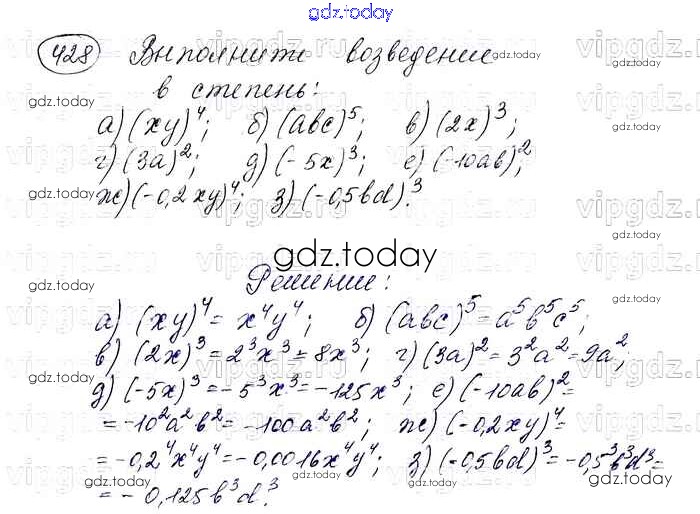 gdz.today
428 Выполните возведение
в степень:
а) (xy)⁴; б) (abc)⁵; в) (2x)³;
г) (3a)²; д) (-5x)³; е) (-10ab)²;
ж) (-0,2xy)⁴; з) (-0,5bd)³.
gdz.today
Решение:
а) (xy)⁴ = x⁴y⁴; б) (abc)⁵ = a⁵b⁵c⁵;
в) (2x)³ = 2³x³ = 8x³; г) (3a)² = 3²a² = 9a²;
д) (-5x)³ = -5³x³ = -125x³; е) (-10ab)² =
= -10²a²b² = -100a²b²; ж) (-0,2xy)⁴ =
= -0,2⁴x⁴y⁴ = -0,0016x⁴y⁴; з) (-0,5bd)³ = -0,5³b³d³ =
= -0,125b³d³.